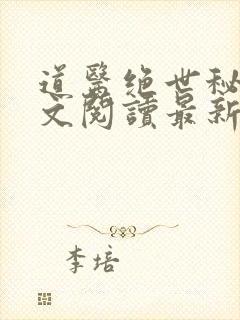 道醫絕世秘
文閱讀最新
李培